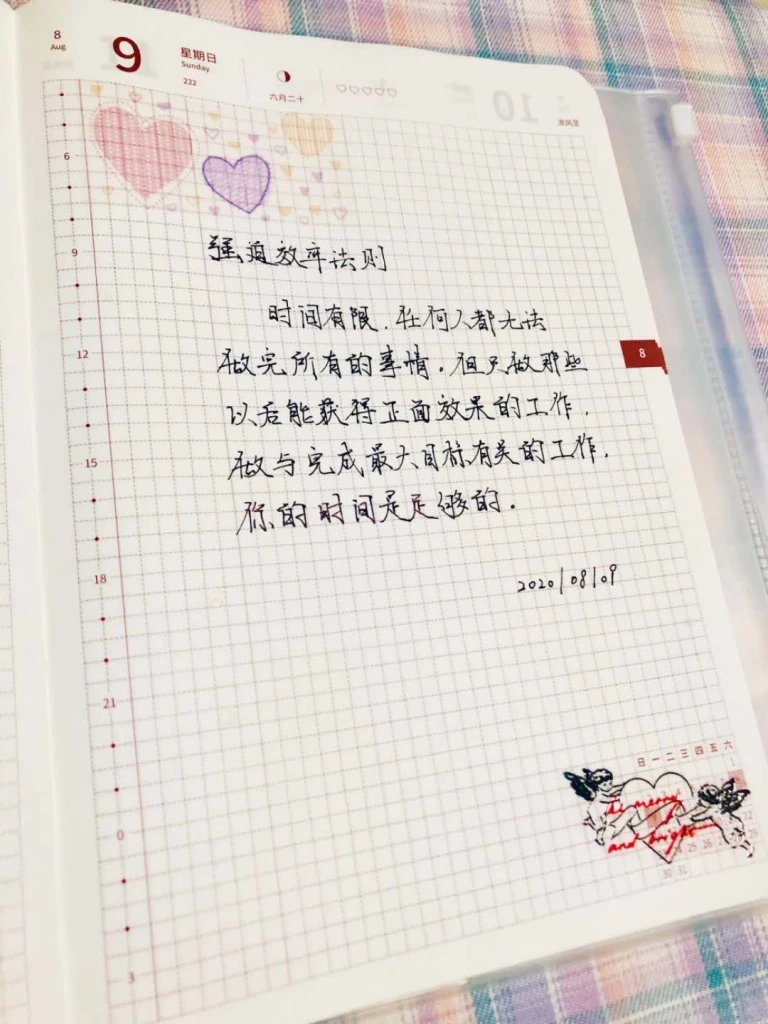 8
Aug
9
星期日
Sunday
222
六月二十
♡♡♡♡♡
10
6
9
12
15
18
21
0
3
8
强迫效率法则
时间有限.任何人都无法
做完所有的事情.但只做那些
以后能获得正面效果的工作.
做与完成最大目标有关的工作.
你的时间是足够的.
2020/08/09
日 一 二 三 四 五 六
1
22
25 26
30 31
and bright